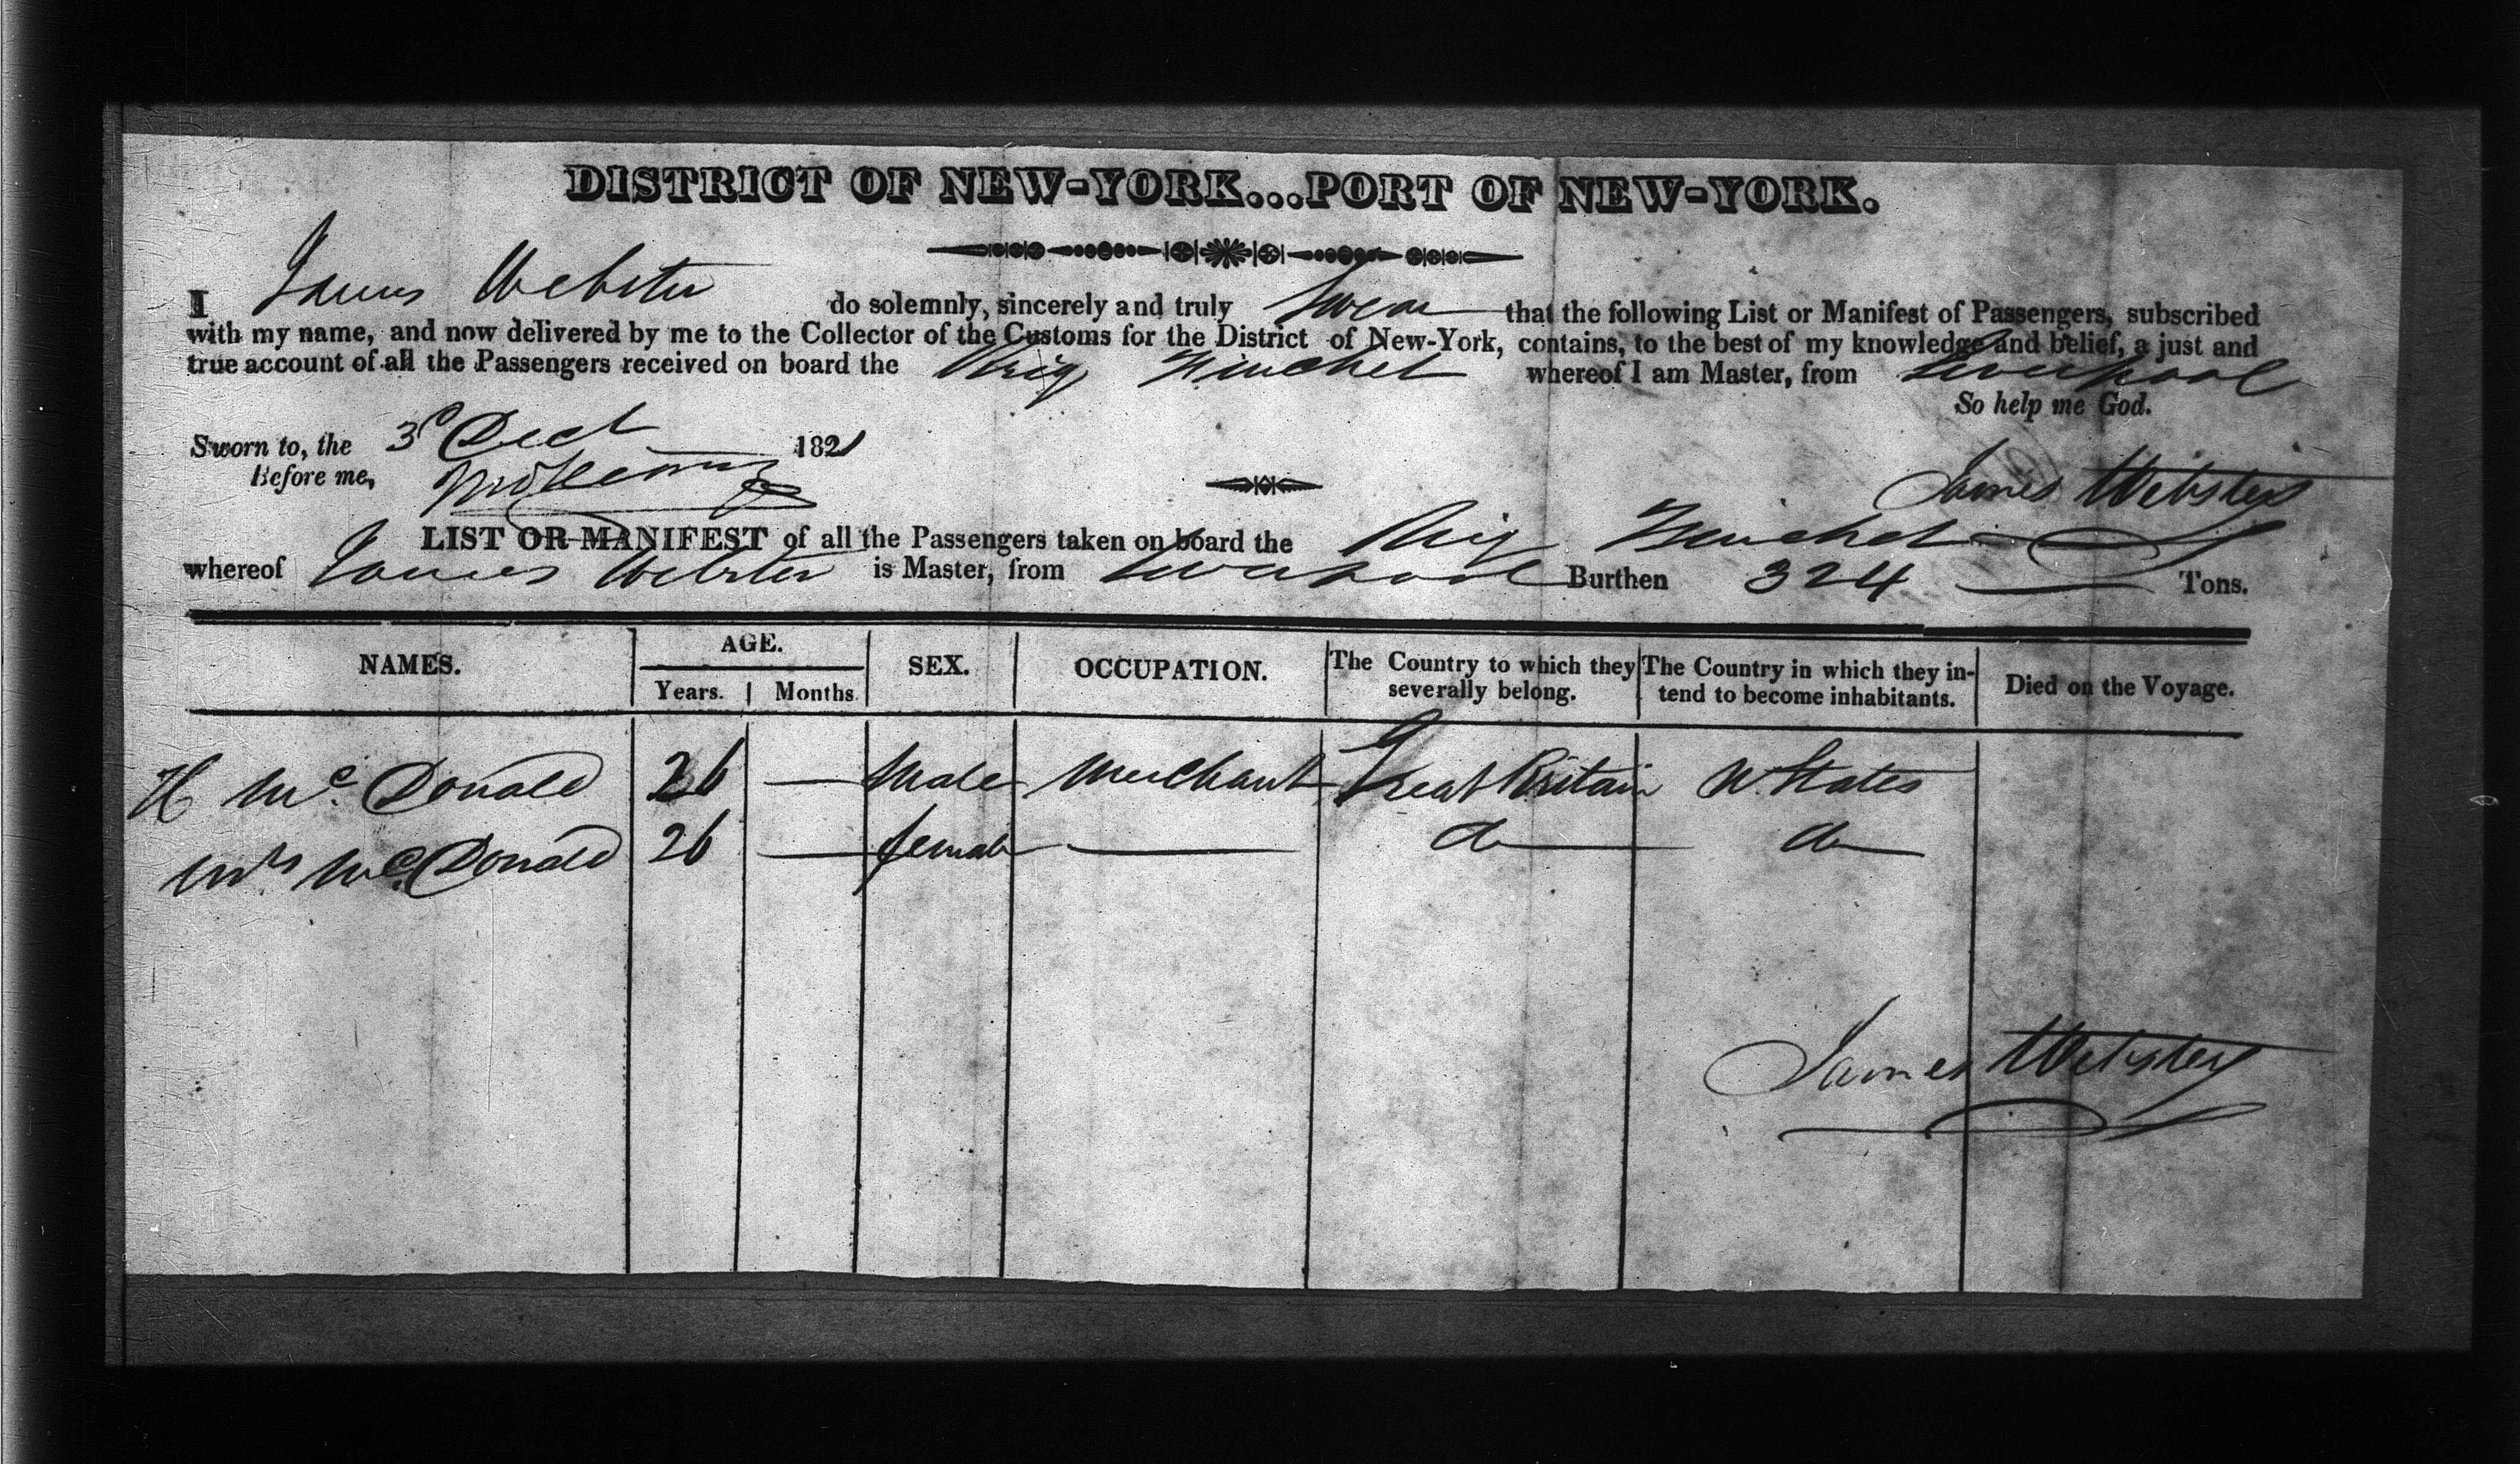 DISTRICT OF NEW-YORK...PORT OF NEW-YORK.
I James Webster do solemnly, sincerely and truly swear that the following List or Manifest of Passengers, subscribed
with my name, and now delivered by me to the Collector of the Customs for the District of New-York, contains, to the best of my knowledge and belief, a just and
true account of all the Passengers received on board the Brig whereof I am Master, from Liverpool
So help me God.
Sworn to, the 3d Decr 1821
Before me,
James Webster
LIST OR MANIFEST of all the Passengers taken on board the Brig
whereof James Webster is Master, from Liverpool Burthen 324 Tons.
NAMES. AGE. SEX. OCCUPATION. The Country to which they severally belong. The Country in which they intend to become inhabitants. Died on the Voyage.
Years. Months.
H McDonald 26 — Male Merchant Great Britain U. States
Mrs McDonald 26 — female — do do
James Webster